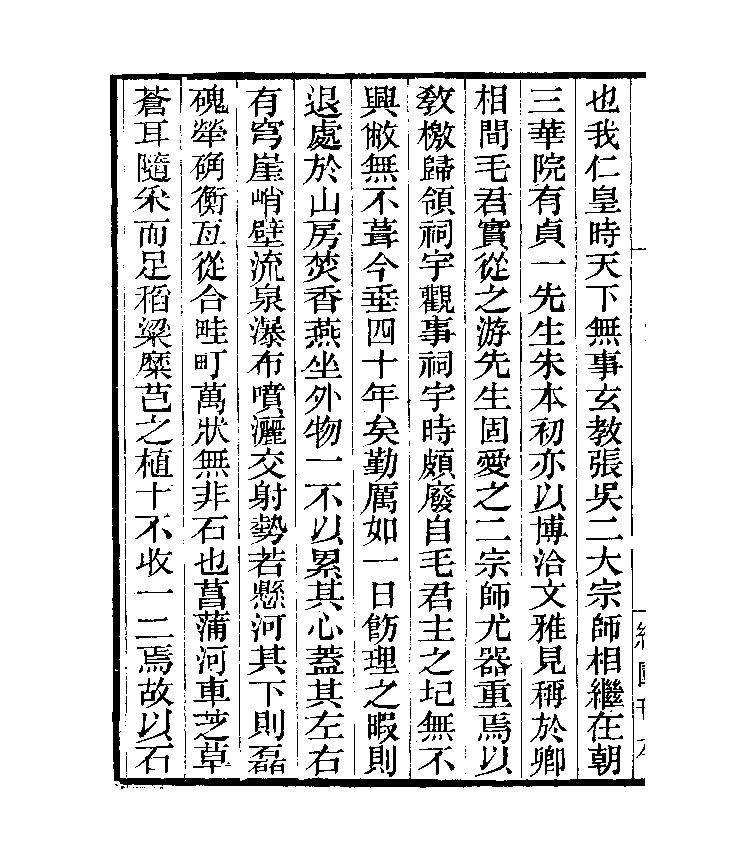 也我仁皇時天下無事玄教張吳二大宗師相繼在朝
三華院有貞一先生朱本初亦以博洽文雅見稱於卿
相間毛君實從之游先生固愛之二宗師尤器重焉以
敎檄歸領祠宇觀事祠宇時頗廢自毛君主之圮無不
興敝無不葺今垂四十年矣勤厲如一日飭理之暇則
退處於山房焚香燕坐外物一不以累其心蓋其左右
有穹崖峭壁流泉瀑布噴灑交射勢若懸河其下則磊
磈犖确衡亙從合畦町萬狀無非石也菖蒲河車芝草
蒼耳隨釆而足稻粱穈芑之植十不收一二焉故以石